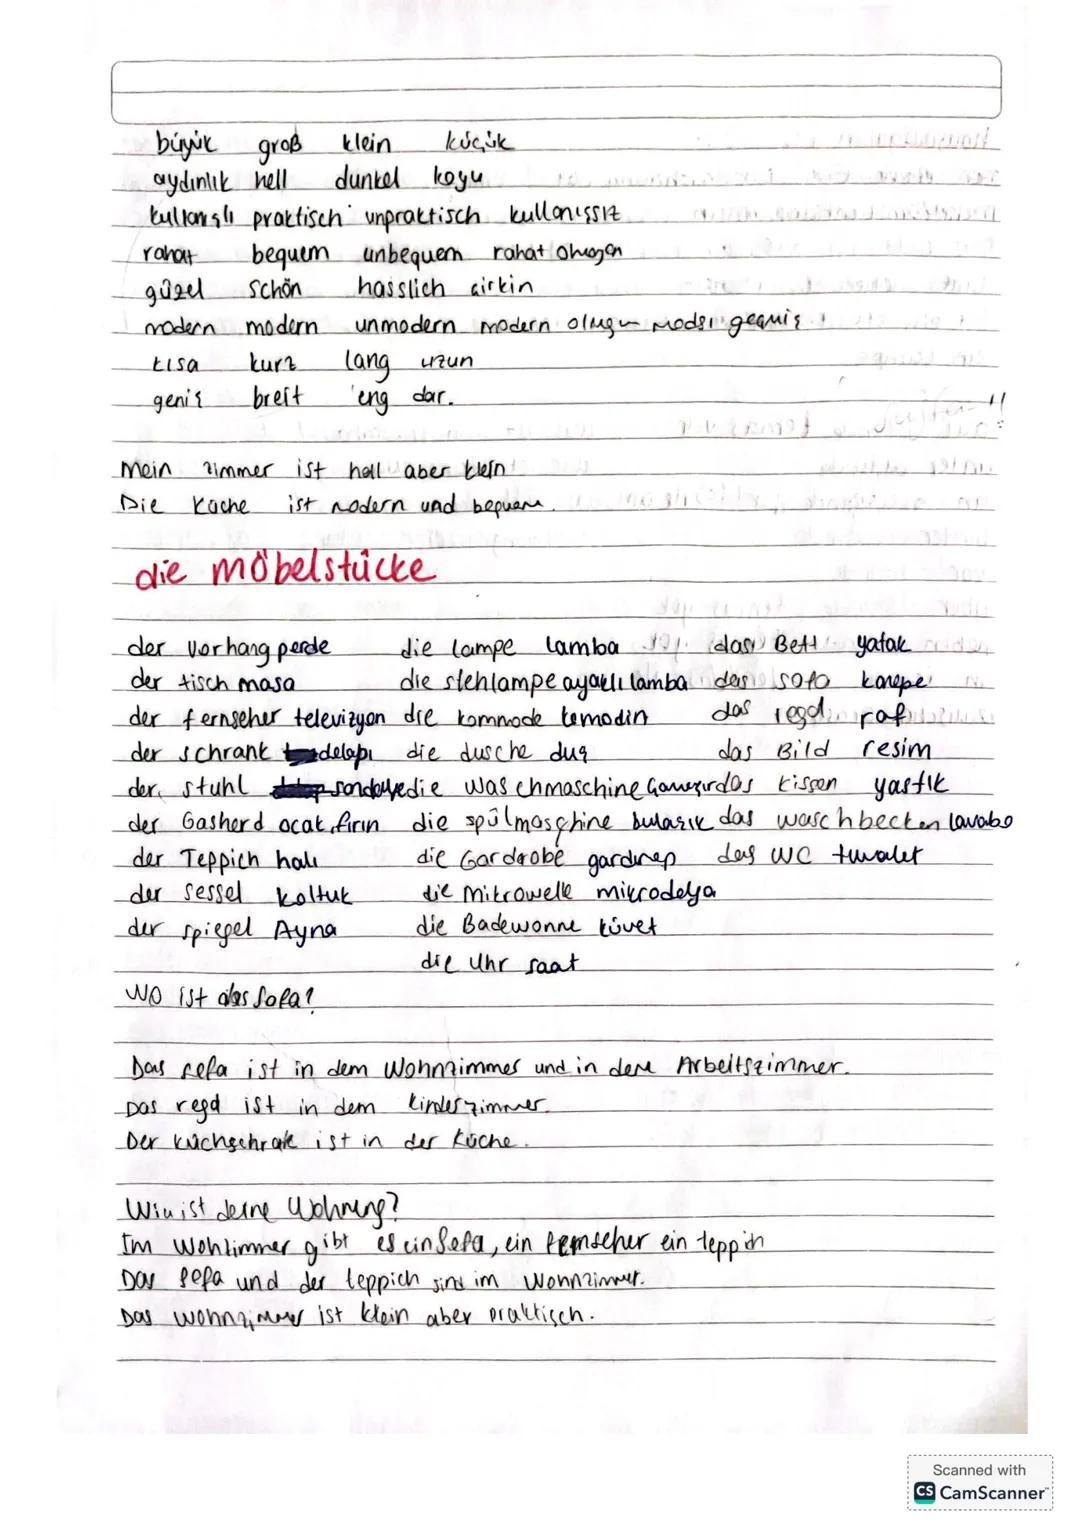 büyük groß klein küçük
aydınlık hell dunkel koyu
kullanışlı praktisch unpraktisch kullanışsız
rahat bequem unbequem rahat olmayan
güzel schön hasslich çirkin
modern modern unmodern modern olmayan modası geçmiş
kısa kurz lang uzun
geniş breit eng dar.
Mein zimmer ist hell aber klein
Die Küche ist modern und bequem.
die möbelstücke
der vorhang perde die lampe lamba das Bett yatak
der tisch masa die stehlampe ayaklı lamba das sofa kanepe
der fernseher televizyon die kommode komodin das regal raf
der schrank dolap die dusche duş das Bild resim
der stuhl sandalye die waschmaschine das kissen yastık
der Gasherd ocak, fırın die spülmaschine bulaşık das waschbecken lavabo
der Teppich halı die Gardrobe gardırop das WC tuvalet
der sessel koltuk die Mikrowelle mikrodalga
der spiegel Ayna die Badewanne küvet
die Uhr saat
WO ist das Sofa?
Das sofa ist in dem Wohnzimmer und in dem Arbeitszimmer.
Das regal ist in dem kinderzimmer.
Der küchschrak ist in der Küche.
Wie ist deine Wohnung?
Im Wohzimmer gibt es ein Sofa, ein fernseher ein teppich
Das Sofa und der teppich sind im wohnzimmer.
Das wohnzimmer ist klein aber praktisch.
Scanned with
CS CamScanner